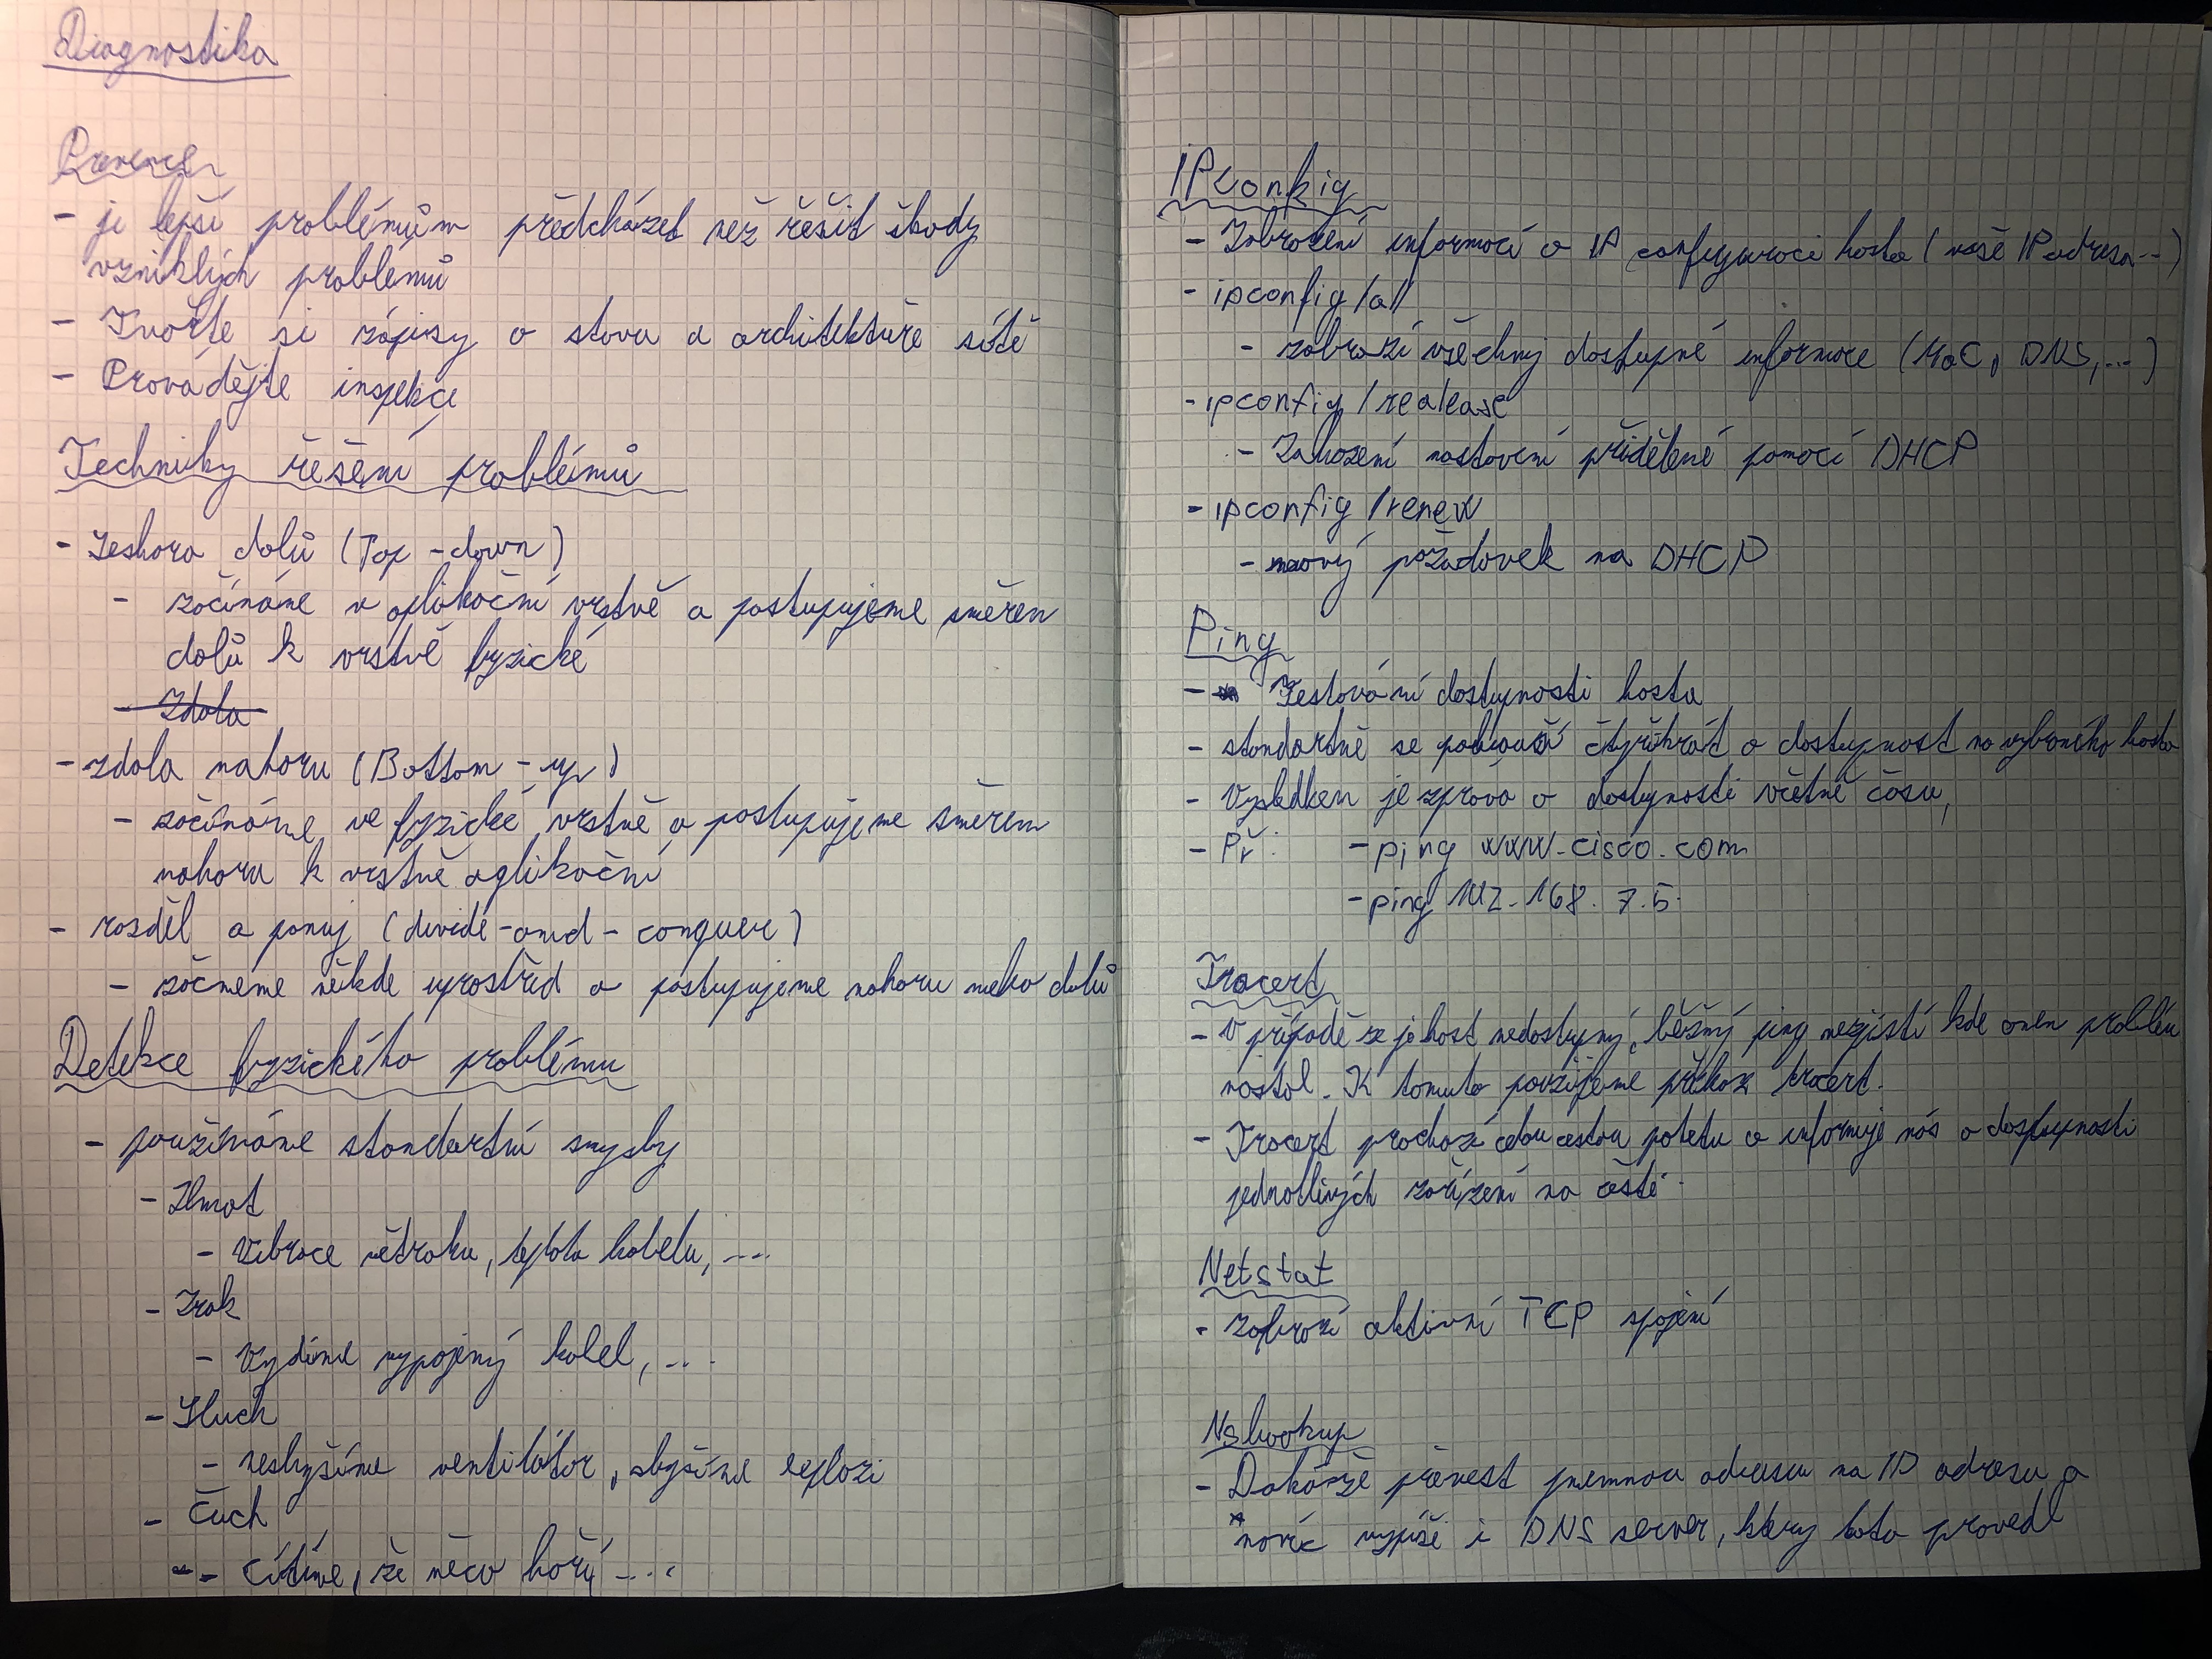 Diagnostika
Prevence
- je lepší problémům předcházet než řešit škody
vzniklých problémů
- Tvořte si zápisy o stavu a architektuře sítě
- Provádějte inspekce
Techniky řešení problémů
- Zeshora dolů (Top-down)
- začínáme v aplikační vrstvě a postupujeme směrem
dolů k vrstvě fyzické
- Zdola
- zdola nahoru (Bottom-up)
- začínáme ve fyzické vrstvě a postupujeme směrem
nahoru k vrstvě aplikační
- rozděl a panuj (divide-and-conquer)
- začneme někde uprostřed a postupujeme nahoru nebo dolů
Detekce fyzického problému
- používáme standartní smysly
- Hmat
- Vibrace větráku, teplota kabelu, ....
- Zrak
- Vydíme vypojený kabel, ...
- Sluch
- neslyšíme ventilátor, slyšíme explozi
- Čuch
- cítíme, že něco hoří ....
IPconfig
- Zobrazení informací o IP configuraci hosta (naše IP adresa..)
- ipconfig /all
- zobrazí všechny dostupné informace (MaC, DNS,...)
- ipconfig /realease
- Zahození nastavení přidělené pomocí DHCP
- ipconfig /renew
- nový požadavek na DHCP
Ping
- Testování dostupnosti hosta
- standartně se pokouší čtyřikrát o dostupnost na vybraného hosta
- Výsledkem je zpráva o dostupnosti včetně času,
- Př: - ping www.cisco.com
- ping 192.168.7.5.
Tracert
- V případě že je host nedostupný, běžný ping nezjistí kde onen problém
nastal. K tomuto použijeme příkaz tracert.
- Tracert prochází celou cestou paketu a informuje nás o dostupnosti
jednotlivých zařízení na cestě.
Netstat
- zobrazí aktivní TCP spojení
Nslookup
- Dokáže převést jmennou adresu na IP adresu a
navíc vypíše i DNS server, který toto provedl